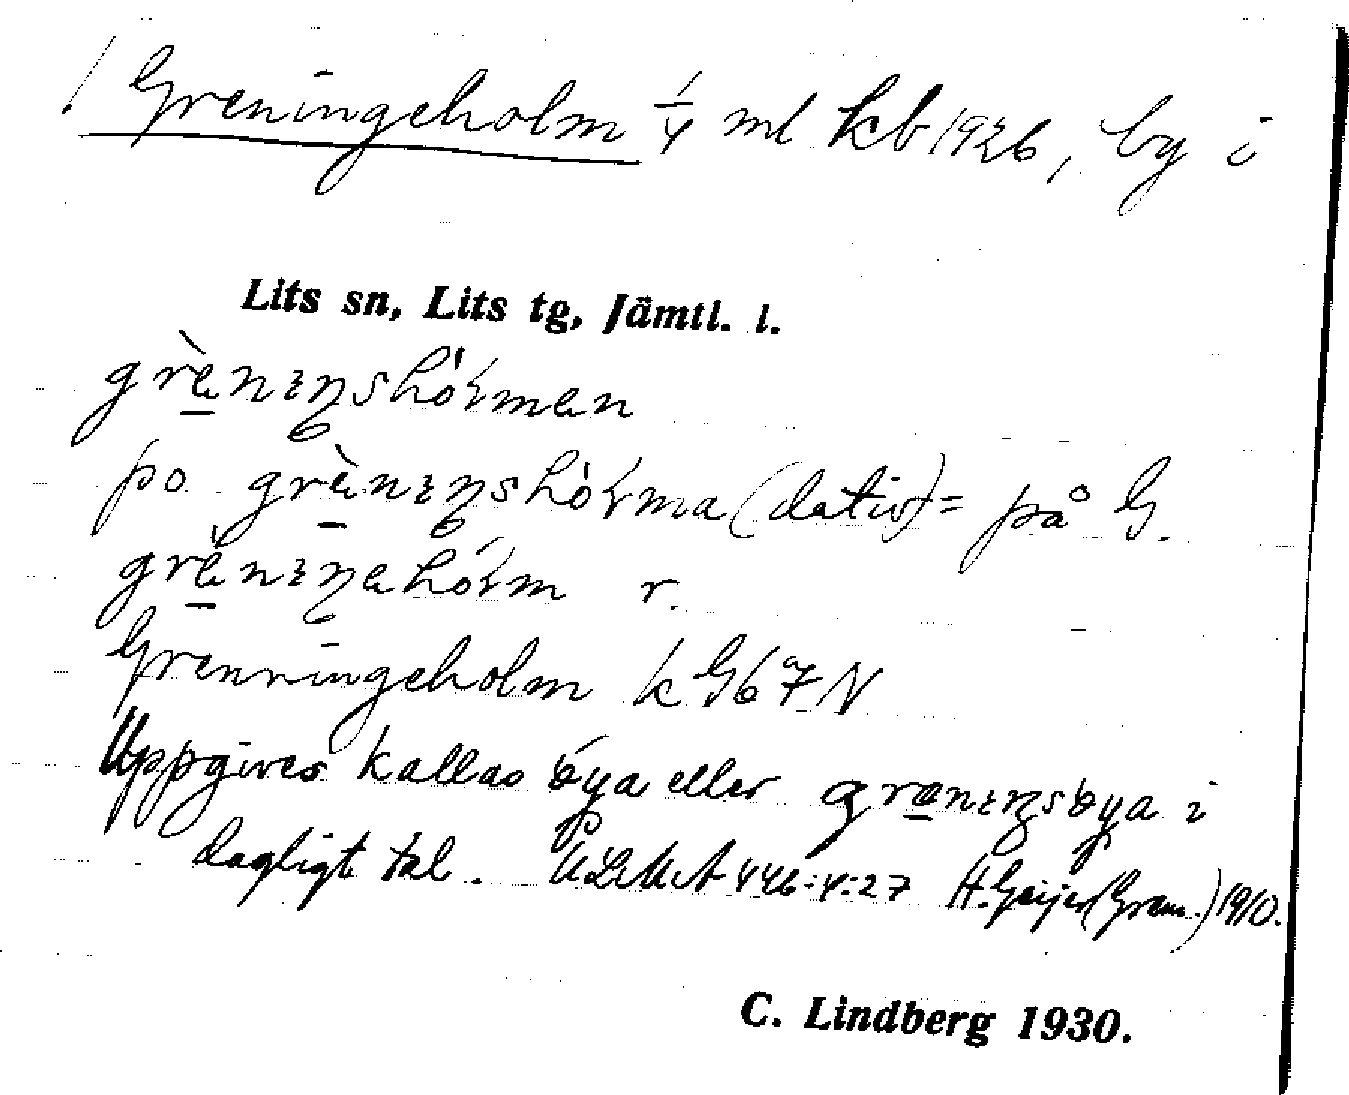 / Greningeholm 1/4 ml kb 1926, by i
Lits sn, Lits tg, Jämtl. l.
grènıŋshólmen
po grènıŋshólma (dativ) = på G.
grènıŋehólm r.
Grenningeholm k G 67 N
Uppgives kallas öya eller grenıŋsöya i
dagligt tal. ULMA 446:4:27 H. Geijer (Gram.) 1910.
C. Lindberg 1930.